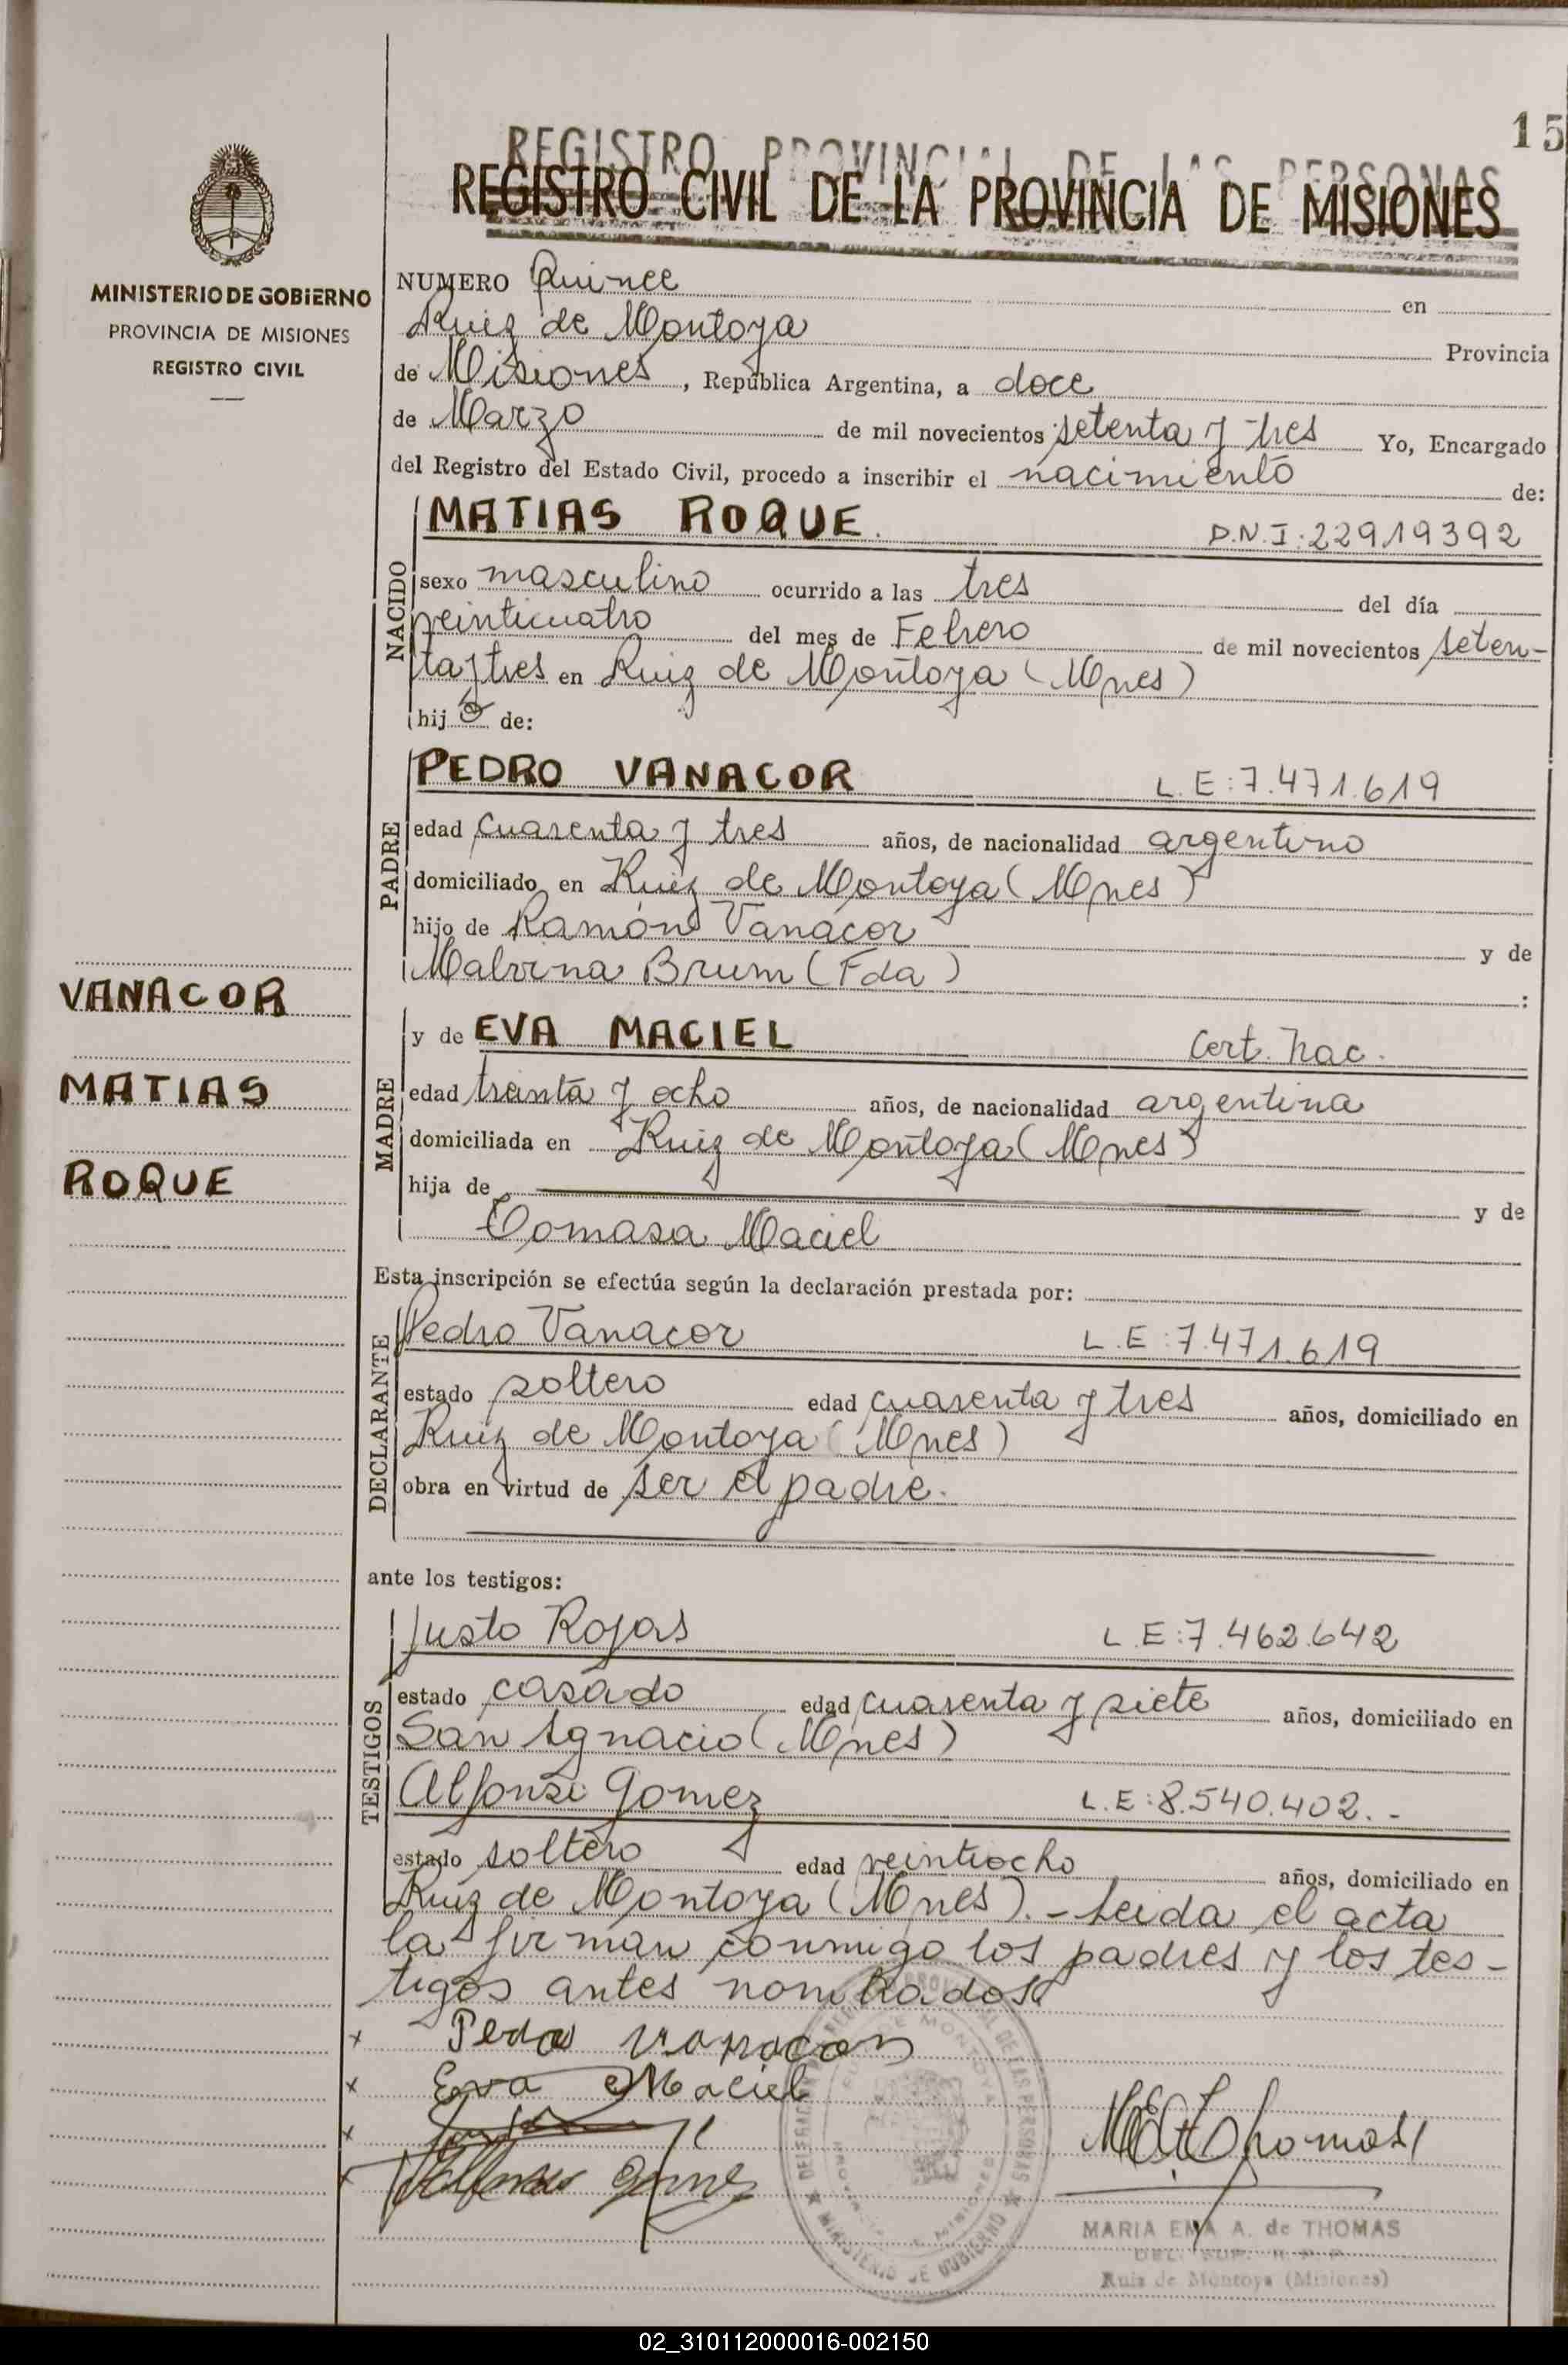 15
REGISTRO PROVINCIAL DE LAS PERSONAS
REGISTRO CIVIL DE LA PROVINCIA DE MISIONES
MINISTERIO DE GOBIERNO
PROVINCIA DE MISIONES
REGISTRO CIVIL
NUMERO Quince en
Ruiz de Montoya Provincia
de Misiones, República Argentina, a doce
de Marzo de mil novecientos setenta y tres Yo, Encargado
del Registro del Estado Civil, procedo a inscribir el nacimiento de:
NACIDO
MATIAS ROQUE. D.N.I: 22919392
sexo masculino ocurrido a las tres del día
veinticuatro del mes de Febrero de mil novecientos seten-
ta y tres en Ruiz de Montoya (Mnes)
hijo de:
PADRE
PEDRO VANACOR L.E: 7.471.619
edad cuarenta y tres años, de nacionalidad argentino
domiciliado en Ruiz de Montoya (Mnes)
hijo de Ramón Vanacor y de
Malvina Brum (Fda) :
VANACOR
MATIAS
ROQUE
MADRE
y de EVA MACIEL Cert. Nac.
edad treinta y ocho años, de nacionalidad argentina
domiciliada en Ruiz de Montoya (Mnes)
hija de y de
Tomasa Maciel
Esta inscripción se efectúa según la declaración prestada por:
DECLARANTE
Pedro Vanacor L.E: 7.471.619
estado soltero edad cuarenta y tres años, domiciliado en
Ruiz de Montoya (Mnes)
obra en virtud de ser el padre.
ante los testigos:
TESTIGOS
Justo Rojas L.E: 7.462.642
estado casado edad cuarenta y siete años, domiciliado en
San Ignacio (Mnes)
Alfonso Gomez L.E: 8.540.402.-
estado soltero edad veintiocho años, domiciliado en
Ruiz de Montoya (Mnes). - Leida el acta
la firman conmigo los padres y los tes-
tigos antes nombrados
x Pedro Vanacor
x Eva Maciel
x
x Alfonso Gomez
MINISTERIO DE GOBIERNO
MARIA EMA A. de THOMAS
DEL. SUP. R.P.P.
Ruiz de Montoya (Misiones)
02_310112000016-002150